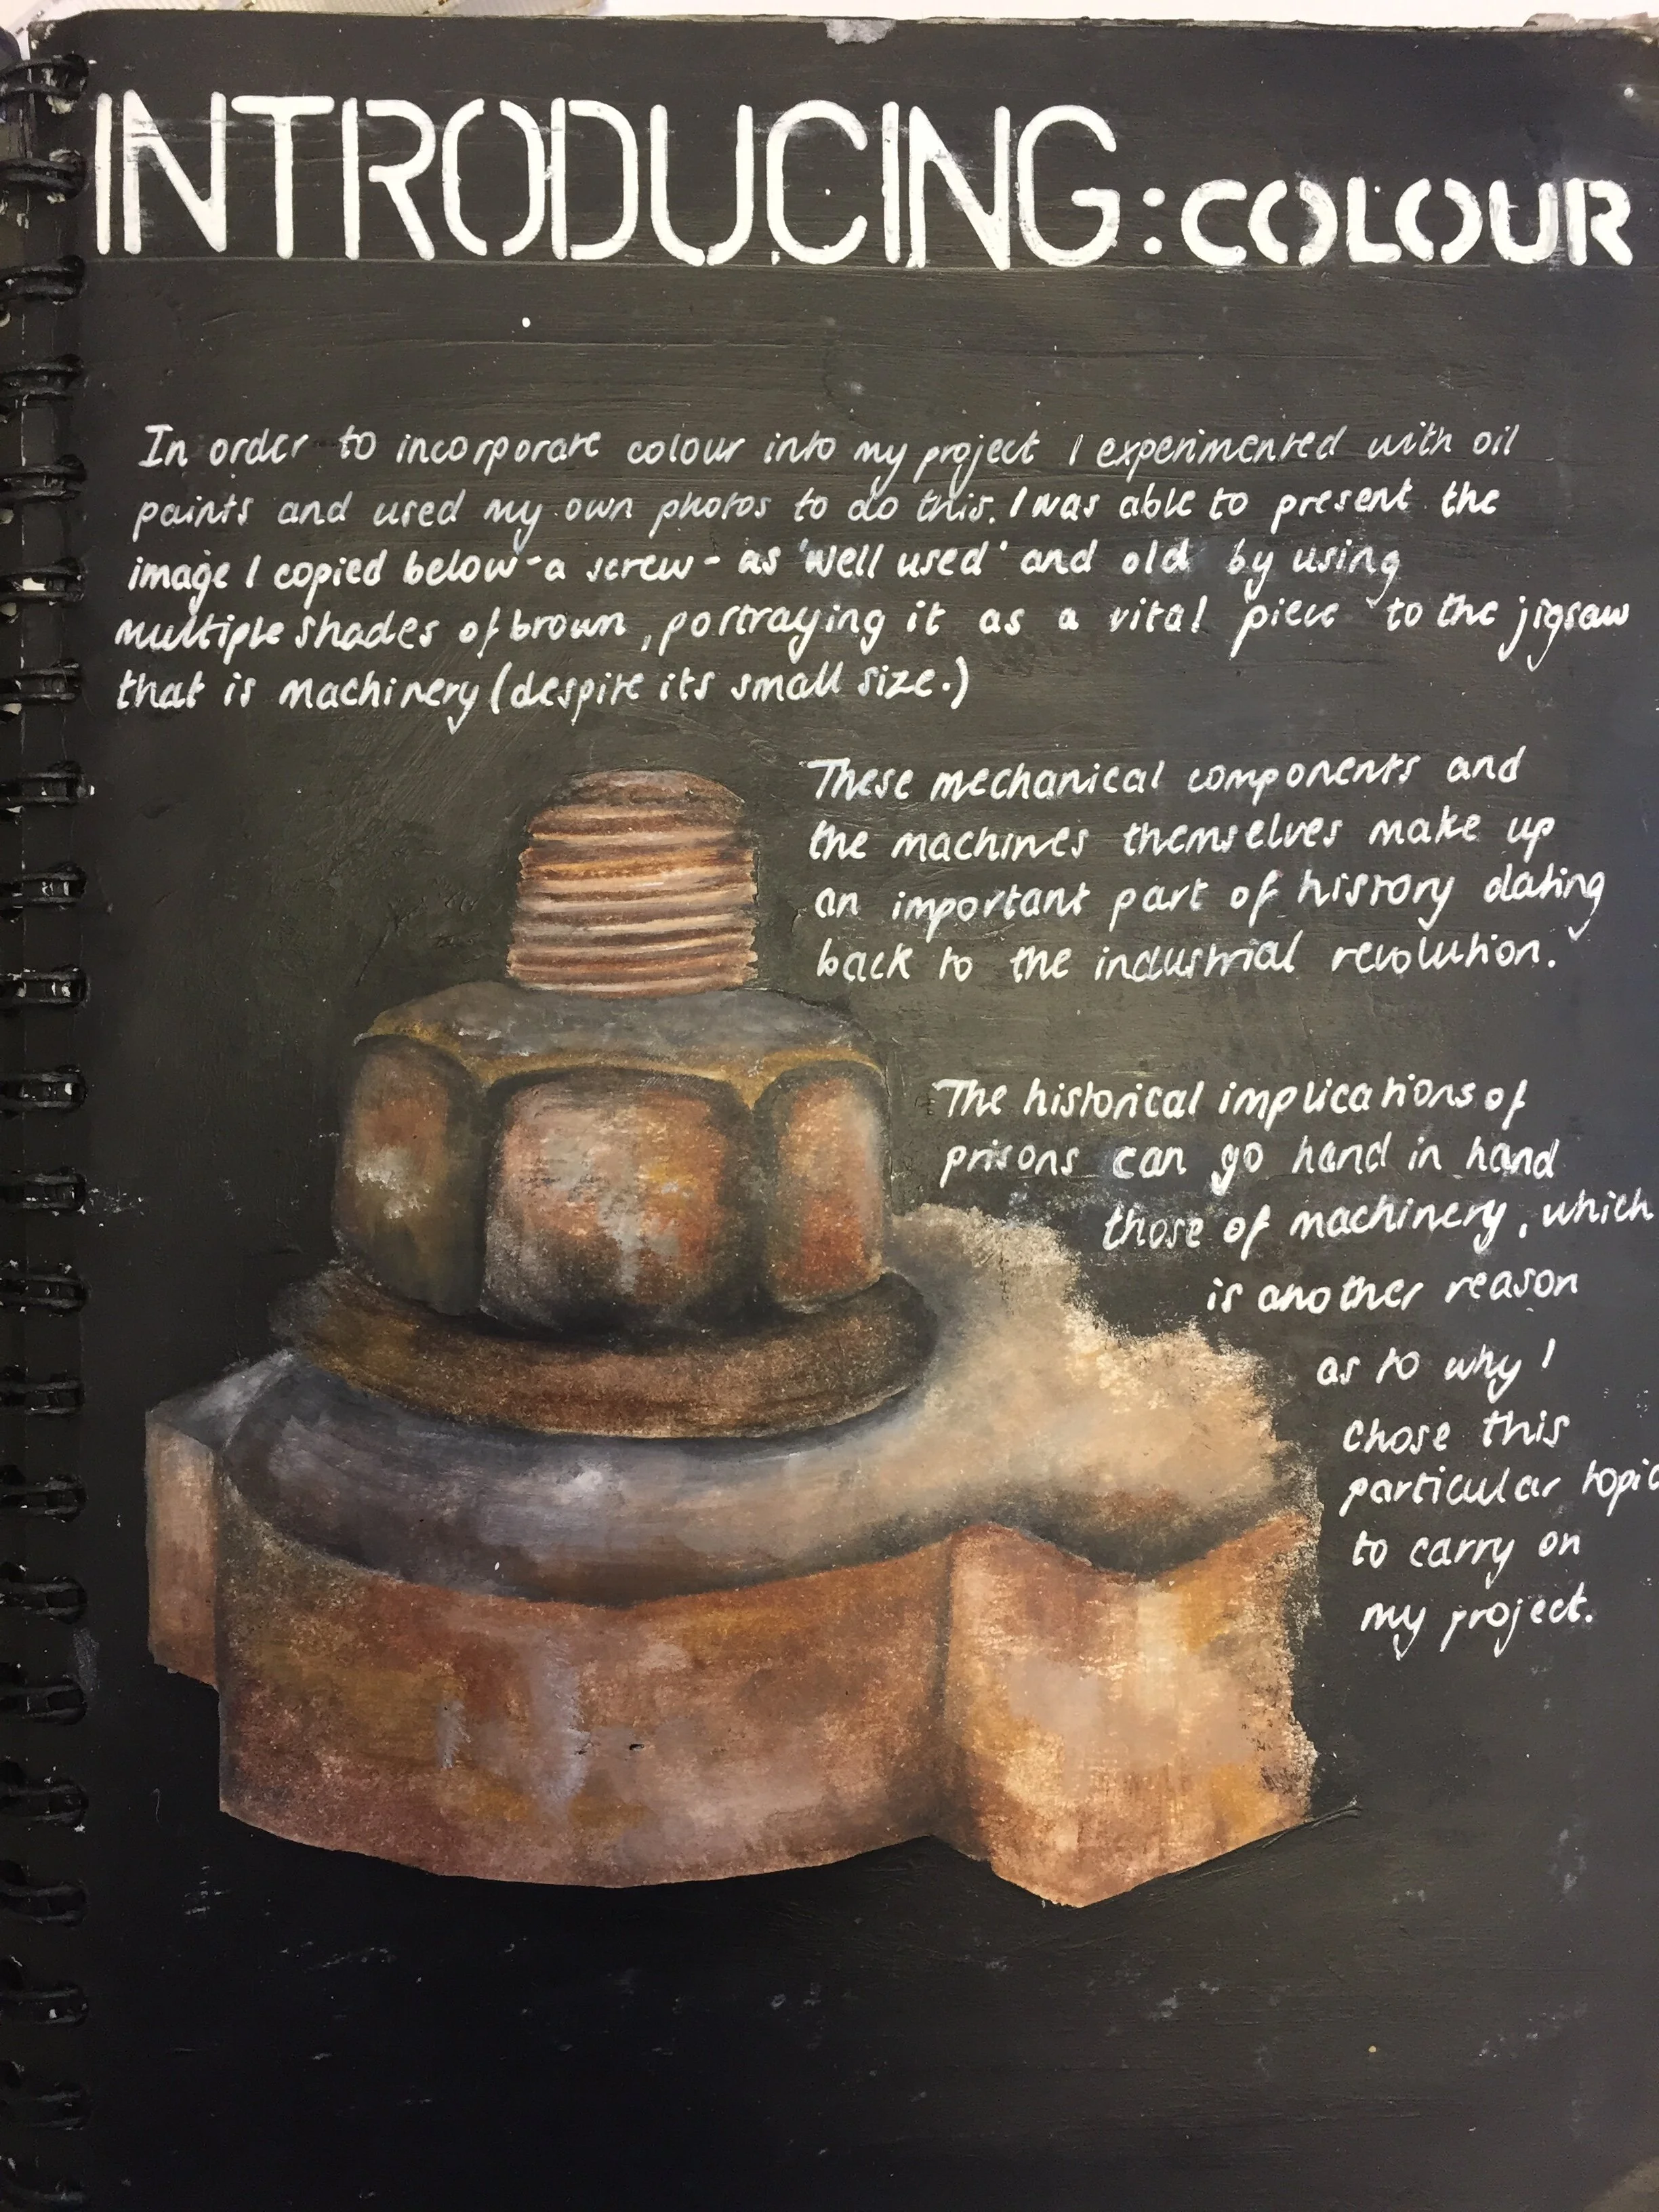 INTRODUCING: COLOUR
In order to incorporate colour into my project I experimented with oil
paints and used my own photos to do this. I was able to present the
image I copied below - a screw - as 'well used' and old by using
multiple shades of brown, portraying it as a vital piece to the jigsaw
that is machinery (despite its small size.)
These mechanical components and
the machines themselves make up
an important part of history dating
back to the industrial revolution.
The historical implications of
prisons can go hand in hand
those of machinery, which
is another reason
as to why I
chose this
particular topic
to carry on
my project.